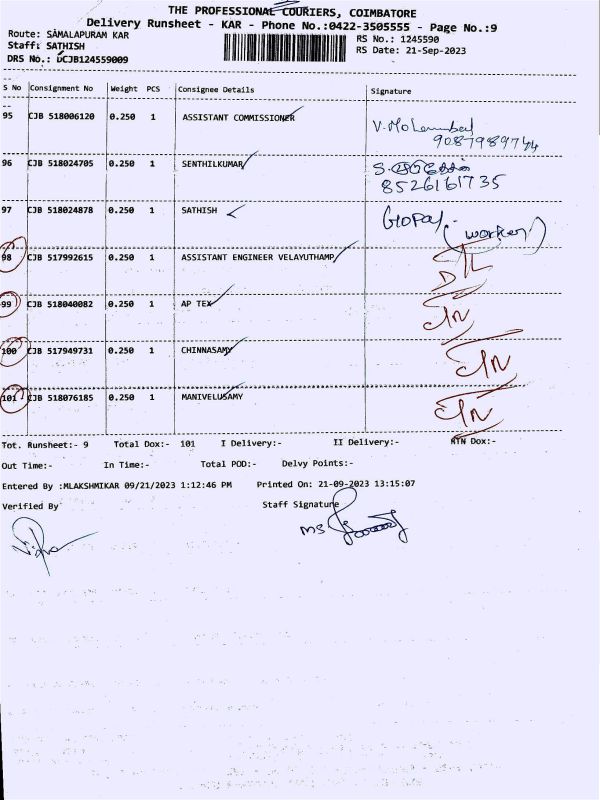 THE PROFESSIONAL COURIERS, COIMBATORE
Delivery Runsheet - KAR - Phone No.:0422-3505555 - Page No.:9
Route: SAMALAPURAM KAR
RS No.: 1245590
Staff: SATHISH
RS Date: 21-Sep-2023
DRS No.: DCJB124559009
S No Consignment No Weight PCS Consignee Details Signature
95 CJB 518006120 0.250 1 ASSISTANT COMMISSIONER
9087989744
96 CJB 518024705 0.250 1 SENTHILKUMAR
8526161735
97 CJB 518024878 0.250 1 SATHISH Gopal. (worker)
98 CJB 517992615 0.250 1 ASSISTANT ENGINEER VELAYUTHAMP DL
99 CJB 518040082 0.250 1 AP TEX
100 CJB 517949731 0.250 1 CHINNASAMY
101 CJB 518076185 0.250 1 MANIVELUSAMY
Tot. Runsheet:- 9 Total Dox:- 101 I Delivery:- II Delivery:- RTN Dox:-
Out Time:- In Time:- Total POD:- Delvy Points:-
Entered By :MLAKSHMIKAR 09/21/2023 1:12:46 PM Printed On: 21-09-2023 13:15:07
Verified By Staff Signature
MS